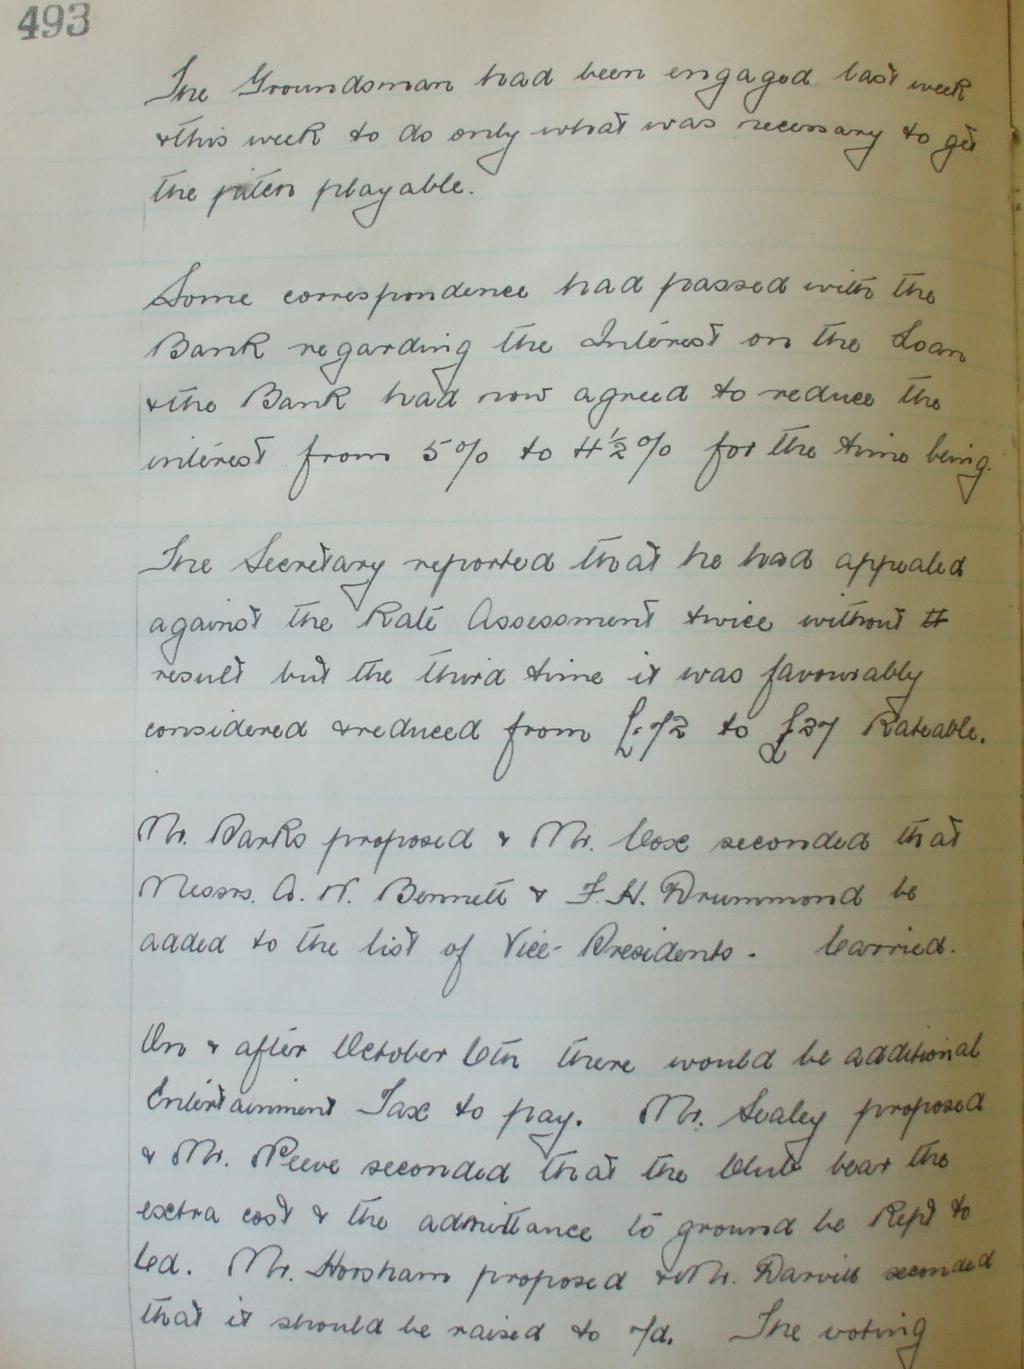 493
The Groundsman had been engaged last week
& this week to do only what was necessary to get
the pitch playable.
Some correspondence had passed with the
Bank regarding the Interest on the Loan
& the Bank had now agreed to reduce the
interest from 5% to 4½% for the time being.
The Secretary reported that he had appealed
against the Rate Assessment twice without
result but the third time it was favourably
considered & reduced from to £27 Rateable.
Mr. Parks proposed & Mr. Cox seconded that
Messrs. A. N. Bennett & F. H. Drummond be
added to the list of Vice-Presidents. Carried.
On & after October 6th there would be additional
Entertainment Tax to pay. Mr. Sealey proposed
& Mr. Reeve seconded that the Club bear the
extra cost & the admittance to ground be Kept to
6d. Mr. Horsham proposed & Mr. Darvill seconded
that it should be raised to 7d. The voting